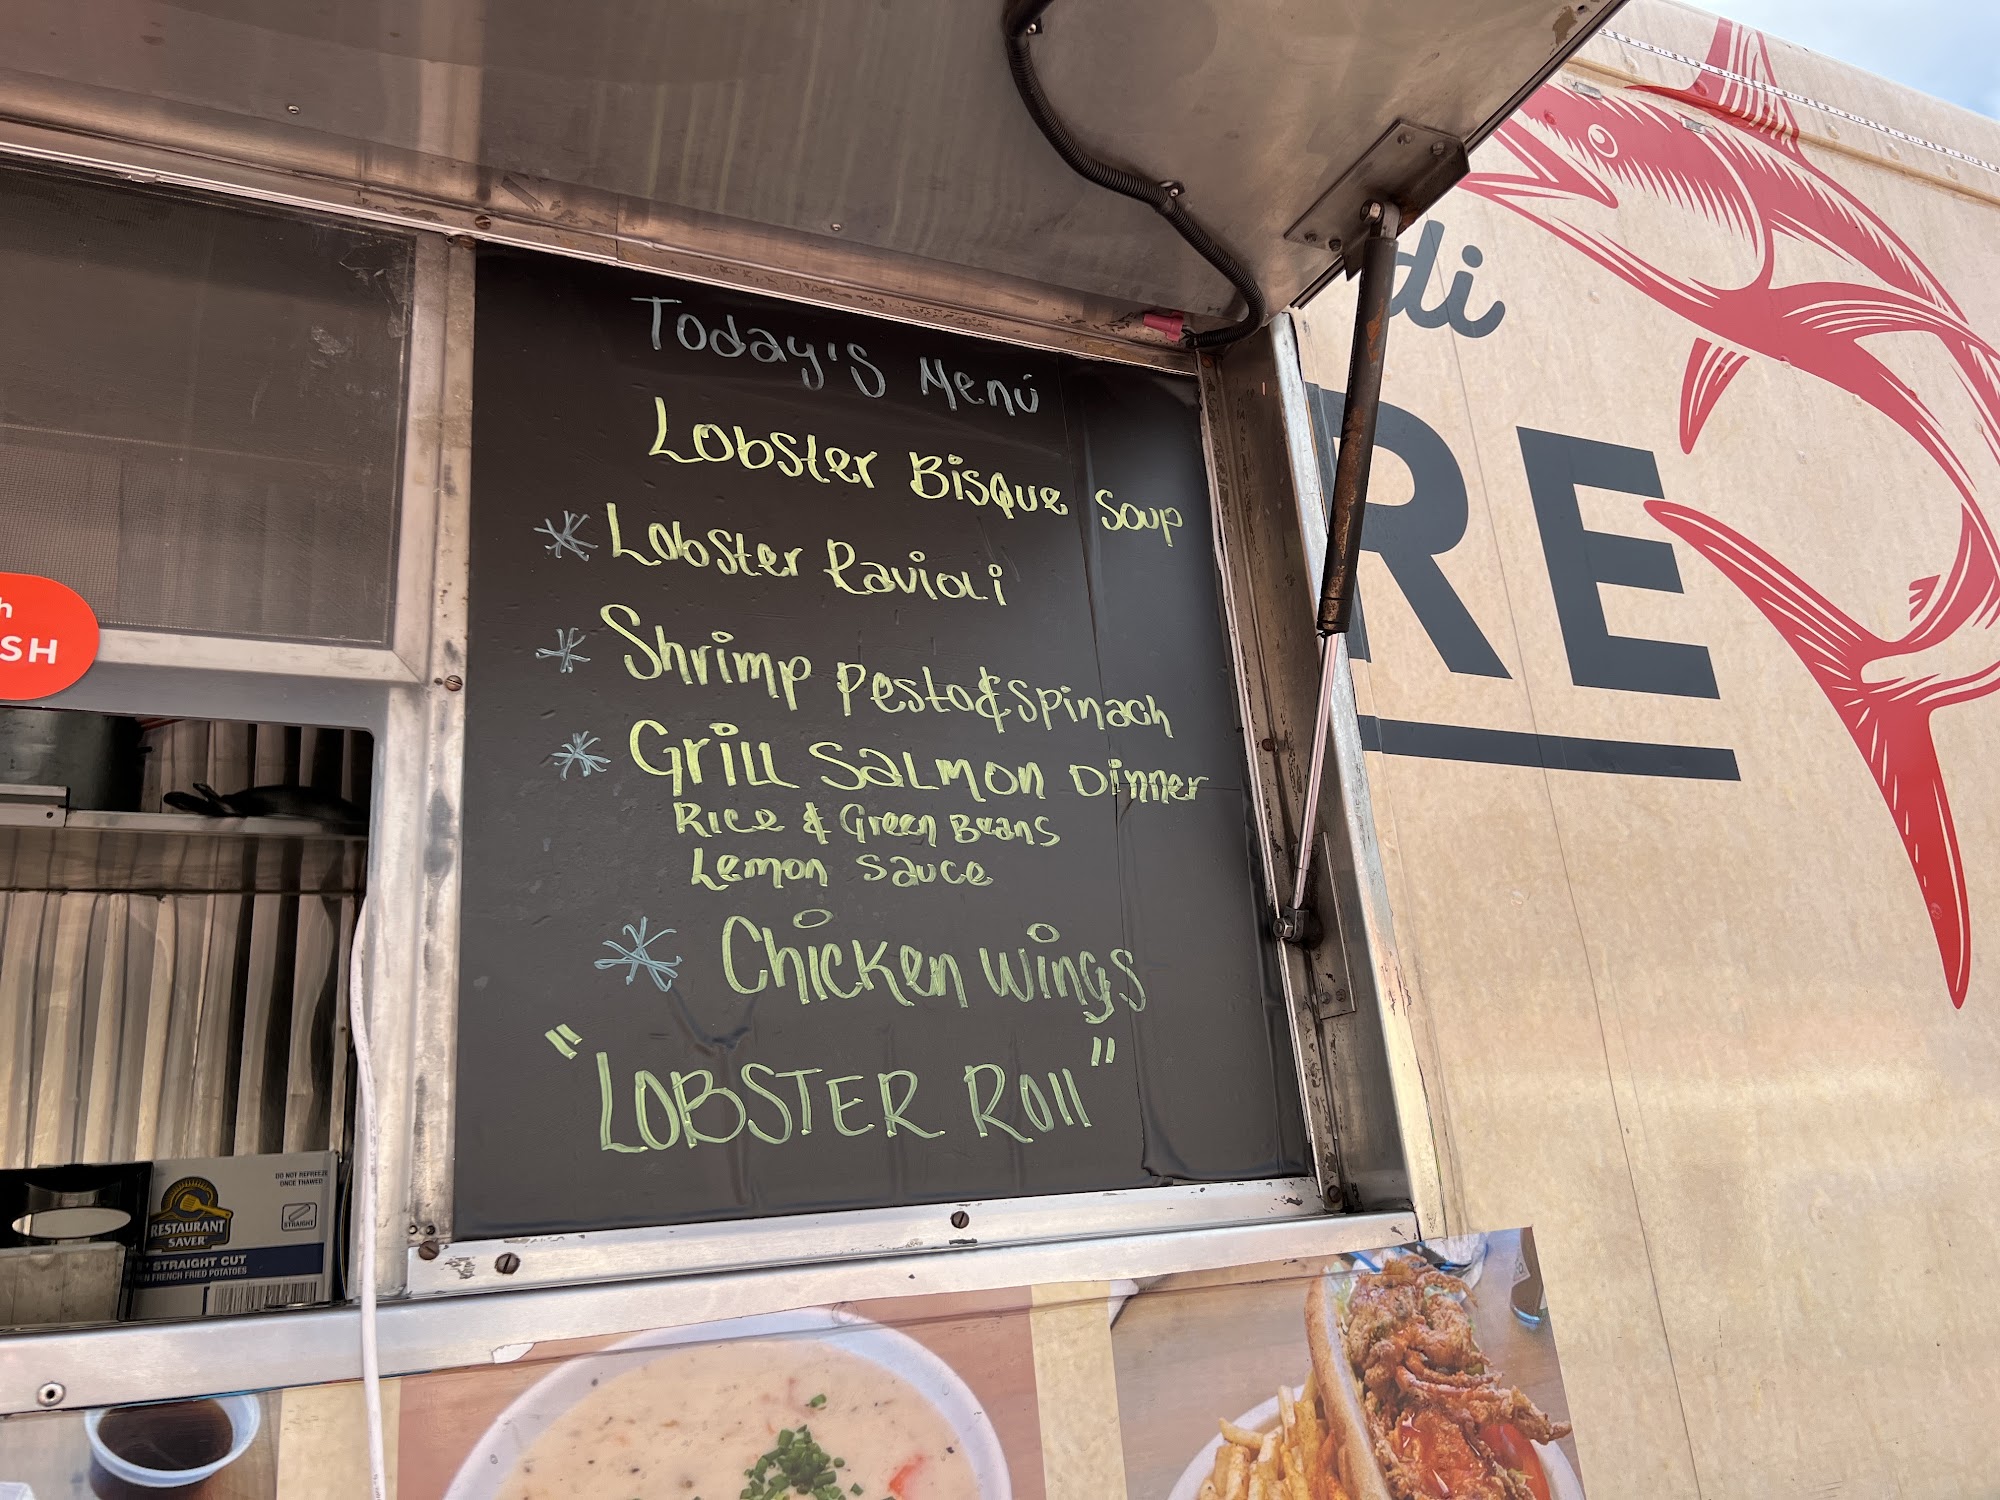 Today's Menú
Lobster Bisque Soup
* Lobster Ravioli
* Shrimp Pesto & Spinach
* Grill Salmon Dinner
Rice & Green Beans
Lemon Sauce
* Chicken Wings
"LOBSTER Roll"
di
RE
h
SH
RESTAURANT
SAVER
DO NOT REFREEZE
ONCE THAWED
STRAIGHT
STRAIGHT CUT
FRENCH FRIED POTATOES